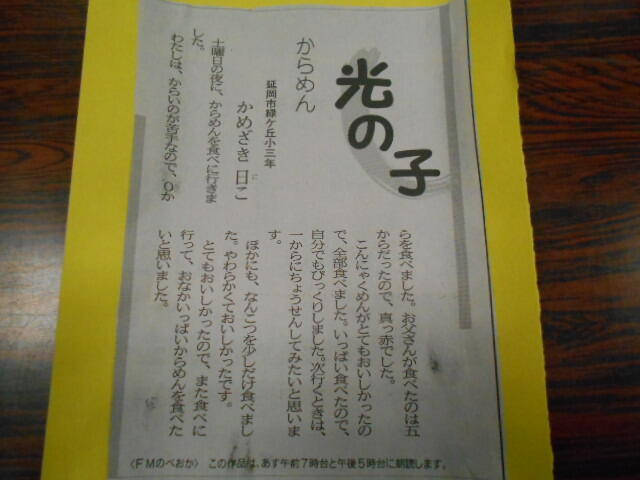 光の子
からめん
延岡市緑ケ丘小三年
かめざき 日こ
に
土曜日の夜に、からめんを食べに行きま
した。
わたしは、からいのが苦手なので、〇か
らを食べました。お父さんが食べたのは五
からだったので、真っ赤でした。
こんにゃくめんがとてもおいしかったの
で、全部食べました。いっぱい食べたので、
自分でもびっくりしました。次行くときは、
一からにちょうせんしてみたいと思いま
す。
ほかにも、なんこつを少しだけ食べまし
た。やわらかくておいしかったです。
とてもおいしかったので、また食べに
行って、おなかいっぱいからめんを食べた
いと思いました。
〈ＦＭのべおか〉 この作品は、あす午前７時台と午後５時台に朗読します。